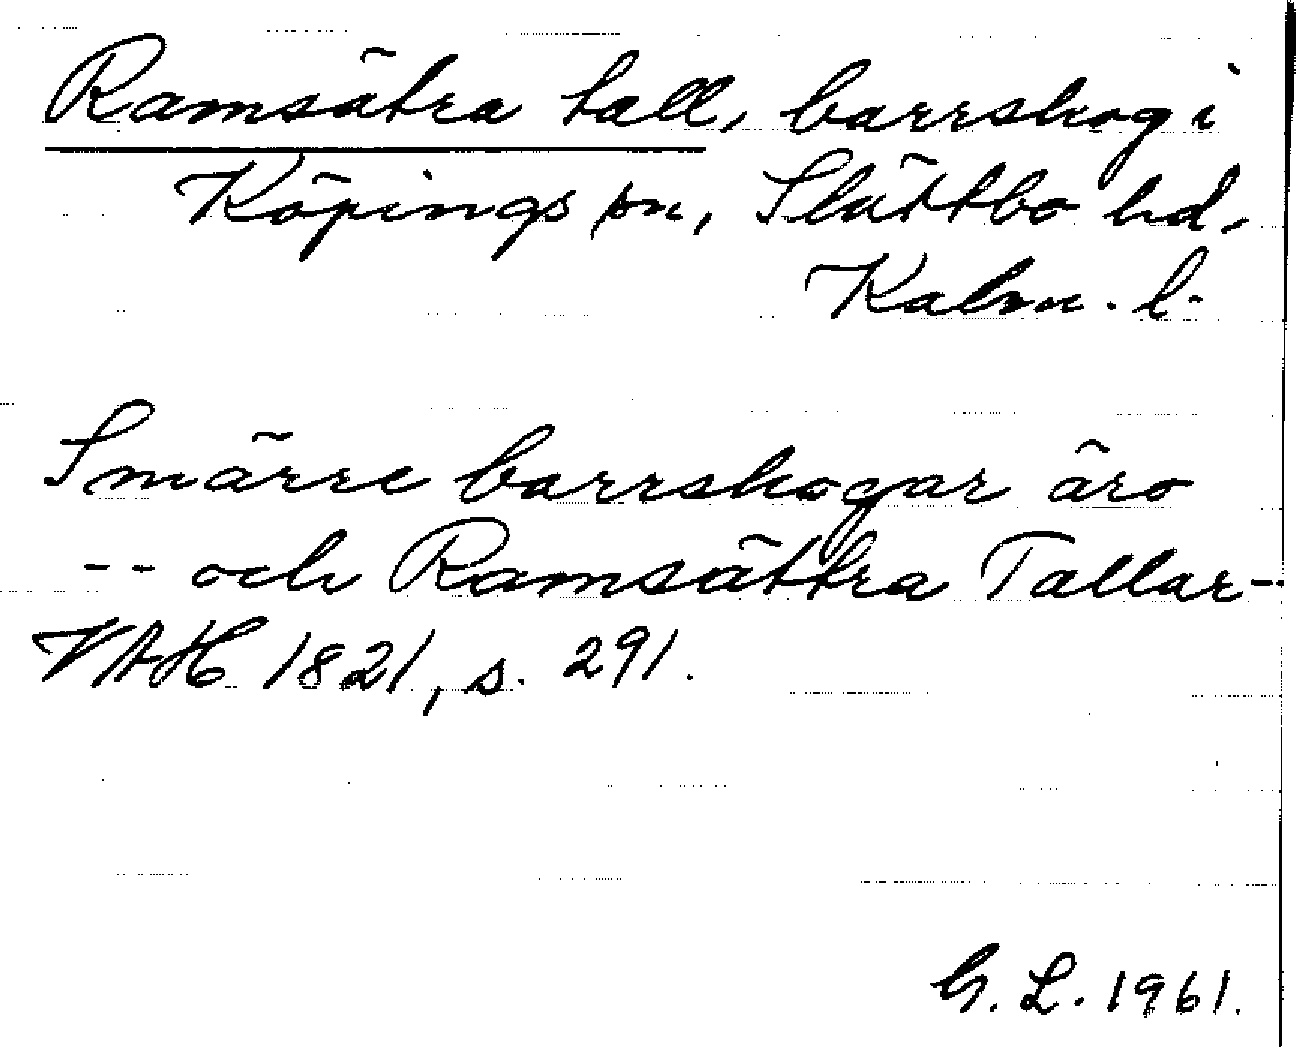 Ramsätra tall, barrskog i
Köpings sn, Slättbo hd,
Kalm. l.
Smärre barrskogar äro
-- och Ramsättra Tallar--
VAH 1821, s. 291.
G. L. 1961.